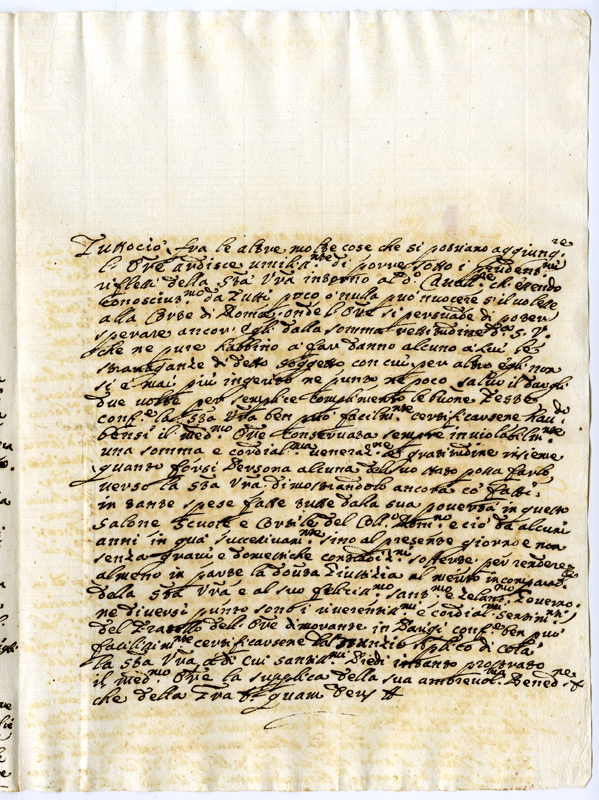 Tuttociò, fra le altre molte cose che si potriano aggiung.re
l'Ore ardisce umilis.nte di porre sotto i prudens.mi
riflessi della Stà Vra intorno a d.o Cavall.re che essendo
conosciutiss.mo da Tutti poco o nulla può nuocere s'il volesse
alla Corte di Roma, onde l'Ore si persuade di poter
sperare ancor' Egli dalla somma rettitudine
che ne pure habbino a far danno alcuno a Lui le
stravaganze di detto soggetto con cui per altro egli non
si è mai più ingerito ne punto ne poco, salvo il dargli
due volte per semplice complimento le buone Feste
conf.e la Stà Vra ben può facilm.nte certificarsene
bensì il med.mo Ore conservata sempre inviolabilm.nte
una somma e cordial.ma veneraz.ne e gratitudine insieme
quanto forsi Persona alcuna del suo stato possa farlo
verso la Stà Vra dimostrandolo ancora co' fatti,
in tante spese fatte tutte dalla sua povertà in queste
Salone Scuole e Cortile del Coll. e ciò da alcuni
anni in quà successivam.nte sino al presente giorno e non
senza gravi e domestiche sofferte, per rendere
almeno in parte la dovuta Giustizia al merito incompar.
della Stà Vra e al suo felicis.mo sant.o e zelan.mo Governo
ne diversi punto sono i riverentis.mi e cordial.mi sentim.ti
del Fratello dell'Ore dimorante in Parigi conf.e ben può
facilm.nte certificarsene dal Nunzio Aplico di colà
la Stà Vra a di cui santis.mi Piedi intanto prostrato
il med.mo Ore la supplica della sua amorevol.ma Bened.ne
che della Gra &c quam Deus &c